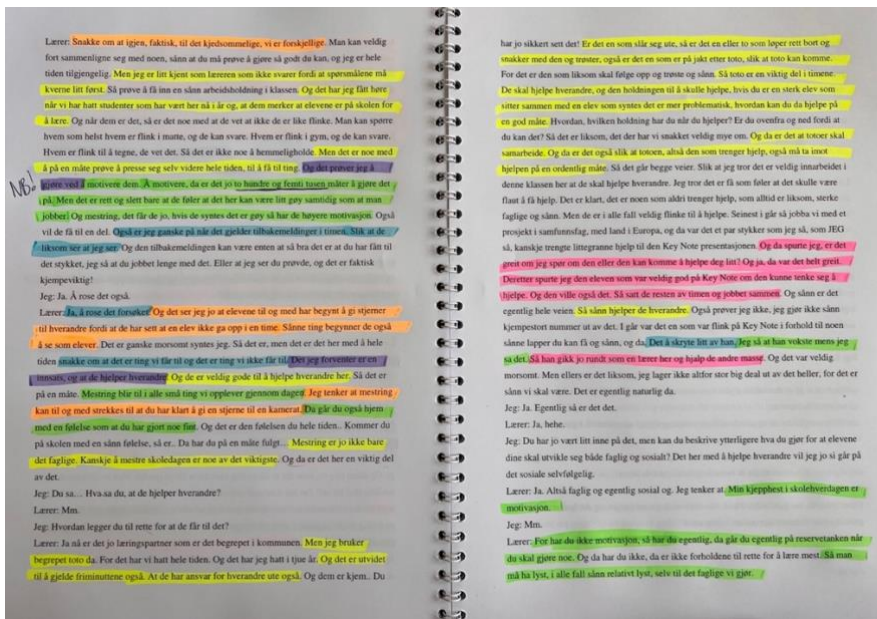 Lærer: Snakke om at igjen, faktisk, til det kjedsommelige, vi er forskjellige. Man kan veldig
fort sammenligne seg med noen, sånn at du må prøve å gjøre så godt du kan, og jeg er hele
tiden tilgjengelig. Men jeg er litt kjent som læreren som ikke svarer fordi at spørsmålene må
kverne litt først. Så prøve å få inn en sånn arbeidsholdning i klassen. Og det har jeg fått høre
når vi har hatt studenter som har vært her nå i år og, at dem merker at elevene er på skolen for
å lære. Og når dem er det, så er det noe med at de vet at ikke de er like flinke. Man kan spørre
hvem som helst hvem er flink i matte, og de kan svare. Hvem er flink i gym, og de kan svare.
Hvem er flink til å tegne, de vet det. Så det er ikke noe å hemmeligholde. Men det er noe med
å på en måte prøve å presse seg selv videre hele tiden, til å få til ting. Og det prøver jeg å
NB! gjøre ved å motivere dem. Å motivere, da er det jo to hundre og femti tusen måter å gjøre det
på. Men det er rett og slett bare at de føler at det her kan være litt gøy samtidig som at man
jobber! Og mestring, det får de jo, hvis de syntes det er gøy så har de høyere motivasjon. Også
vil de få til en del. Også er jeg ganske på når det gjelder tilbakemeldinger i timen. Slik at de
liksom ser at jeg ser. Og den tilbakemeldingen kan være enten at så bra det er at du har fått til
det stykket, jeg så at du jobbet lenge med det. Eller at jeg ser du prøvde, og det er faktisk
kjempeviktig!
Jeg: Ja. Å rose det også.
Lærer: Ja, å rose det forsøket! Og det ser jeg jo at elevene til og med har begynt å gi stjerner
til hverandre fordi at de har sett at en elev ikke ga opp i en time. Sånne ting begynner de også
å se som elever. Det er ganske morsomt syntes jeg. Så det er, men det er det her med å hele
tiden snakke om at det er ting vi får til og det er ting vi ikke får til. Det jeg forventer er en
innsats, og at de hjelper hverandre. Og de er veldig gode til å hjelpe hverandre her. Så det er
på en måte. Mestring blir til i alle små ting vi opplever gjennom dagen. Jeg tenker at mestring
kan til og med strekkes til at du har klart å gi en stjerne til en kamerat. Da går du også hjem
med en følelse som at du har gjort noe fint. Og det er den følelsen du hele tiden.. Kommer du
på skolen med en sånn følelse, så er.. Du har da på en måte fulgt... Mestring er jo ikke bare
det faglige. Kanskje å mestre skoledagen er noe av det viktigste. Og da er det her en viktig del
av det.
Jeg: Du sa... Hva sa du, at de hjelper hverandre?
Lærer: Mm.
Jeg: Hvordan legger du til rette for at de får til det?
Lærer: Ja nå er det jo læringspartner som er det begrepet i kommunen. Men jeg bruker
begrepet toto da. For det har vi hatt hele tiden. Og det har jeg hatt i tjue år. Og det er utvidet
til å gjelde friminuttene også. At de har ansvar for hverandre ute også. Og dem er kjem.. Du
har jo sikkert sett det! Er det en som slår seg ute, så er det en eller to som løper rett bort og
snakker med den og trøster, også er det en som er på jakt etter toto, slik at toto kan komme.
For det er den som liksom skal følge opp og trøste og sånn. Så toto er en viktig del i timene.
De skal hjelpe hverandre, og den holdningen til å skulle hjelpe, hvis du er en sterk elev som
sitter sammen med en elev som syntes det er mer problematisk, hvordan kan du da hjelpe på
en god måte. Hvordan, hvilken holdning har du når du hjelper? Er du ovenfra og ned fordi at
du kan det? Så det er liksom, det der har vi snakket veldig mye om. Og da er det at totoer skal
samarbeide. Og da er det også slik at totoen, altså den som trenger hjelp, også må ta imot
hjelpen på en ordentlig måte. Så det går begge veier. Slik at jeg tror det er veldig innarbeidet i
denne klassen her at de skal hjelpe hverandre. Jeg tror det er få som føler at det skulle være
flaut å få hjelp. Det er klart, det er noen som aldri trenger hjelp, som alltid er liksom, sterke
faglige og sånn. Men de er i alle fall veldig flinke til å hjelpe. Seinest i går så jobba vi med et
prosjekt i samfunnsfag, med land i Europa, og da var det et par stykker som jeg så, som JEG
så, kanskje trengte littegranne hjelp til den Key Note presentasjonen. Og da spurte jeg, er det
greit om jeg spør om den eller den kan komme å hjelpe deg litt? Og ja, da var det helt greit.
Deretter spurte jeg den eleven som var veldig god på Key Note om den kunne tenke seg å
hjelpe. Og den ville også det. Så satt de resten av timen og jobbet sammen. Og sånn er det
egentlig hele veien. Så sånn hjelper de hverandre. Også prøver jeg ikke, jeg gjør ikke sånn
kjempestort nummer ut av det. I går var det en som var flink på Key Note i forhold til noen
sånne lapper du kan få og sånn, og da, Det å skryte litt av han, Jeg så at han vokste mens jeg
sa det. Så han gikk jo rundt som en lærer her og hjalp de andre masse. Og det var veldig
morsomt. Men ellers er det liksom, jeg lager ikke altfor stor big deal ut av det heller, for det er
sånn vi skal være. Det er egentlig naturlig da.
Jeg: Ja. Egentlig så er det det.
Lærer: Ja, hehe.
Jeg: Du har jo vært litt inne på det, men kan du beskrive ytterligere hva du gjør for at elevene
dine skal utvikle seg både faglig og sosialt? Det her med å hjelpe hverandre vil jeg jo si går på
det sosiale selvfølgelig.
Lærer: Ja. Altså faglig og egentlig sosial og. Jeg tenker at. Min kjepphest i skolehverdagen er
motivasjon.
Jeg: Mm.
Lærer: For har du ikke motivasjon, så har du egentlig, da går du egentlig på reservetanken når
du skal gjøre noe. Og da har du ikke, da er ikke forholdene til rette for å lære mest. Så man
må ha lyst, i alle fall sånn relativt lyst, selv til det faglige vi gjør.